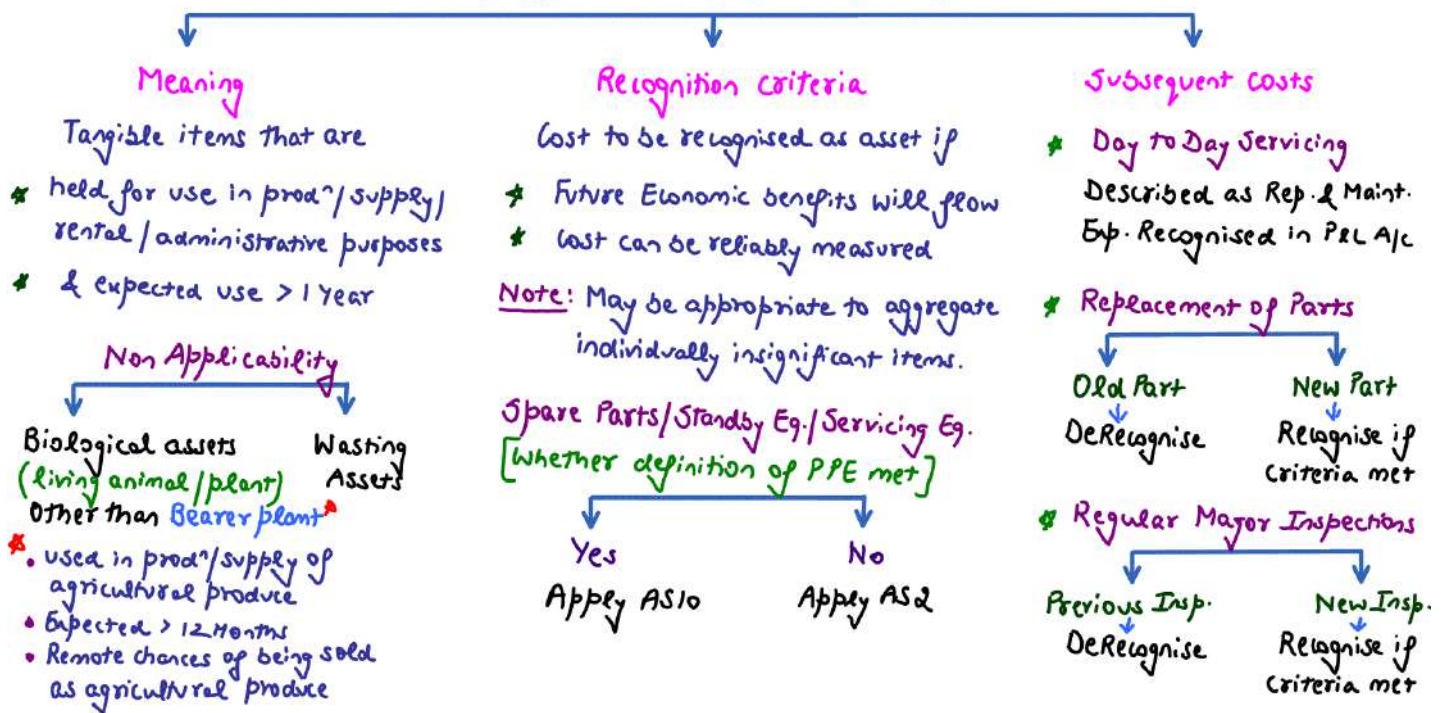 Meaning
Tangible items that are
* held for use in prodⁿ/supply/
rental/administrative purposes
* & expected use > 1 year
Non Applicability
Biological assets
(living animal/plant)
Other than Bearer plant*
Wasting
Assets
* • used in prodⁿ/supply of
agricultural produce
• Expected > 12 Months
• Remote chances of being sold
as agricultural produce
Recognition criteria
Cost to be recognised as asset if
* Future Economic benefits will flow
* Cost can be reliably measured
Note: May be appropriate to aggregate
individually insignificant items.
Spare Parts/Standby Eq./Servicing Eq.
[Whether definition of PPE met]
Yes
Apply AS10
No
Apply AS2
Subsequent costs
* Day to Day Servicing
Described as Rep. & Maint.
Exp. Recognised in P&L A/c
* Replacement of Parts
Old Part
DeRecognise
New Part
Recognise if
criteria met
* Regular Major Inspections
Previous Insp.
DeRecognise
New Insp.
Recognise if
criteria met